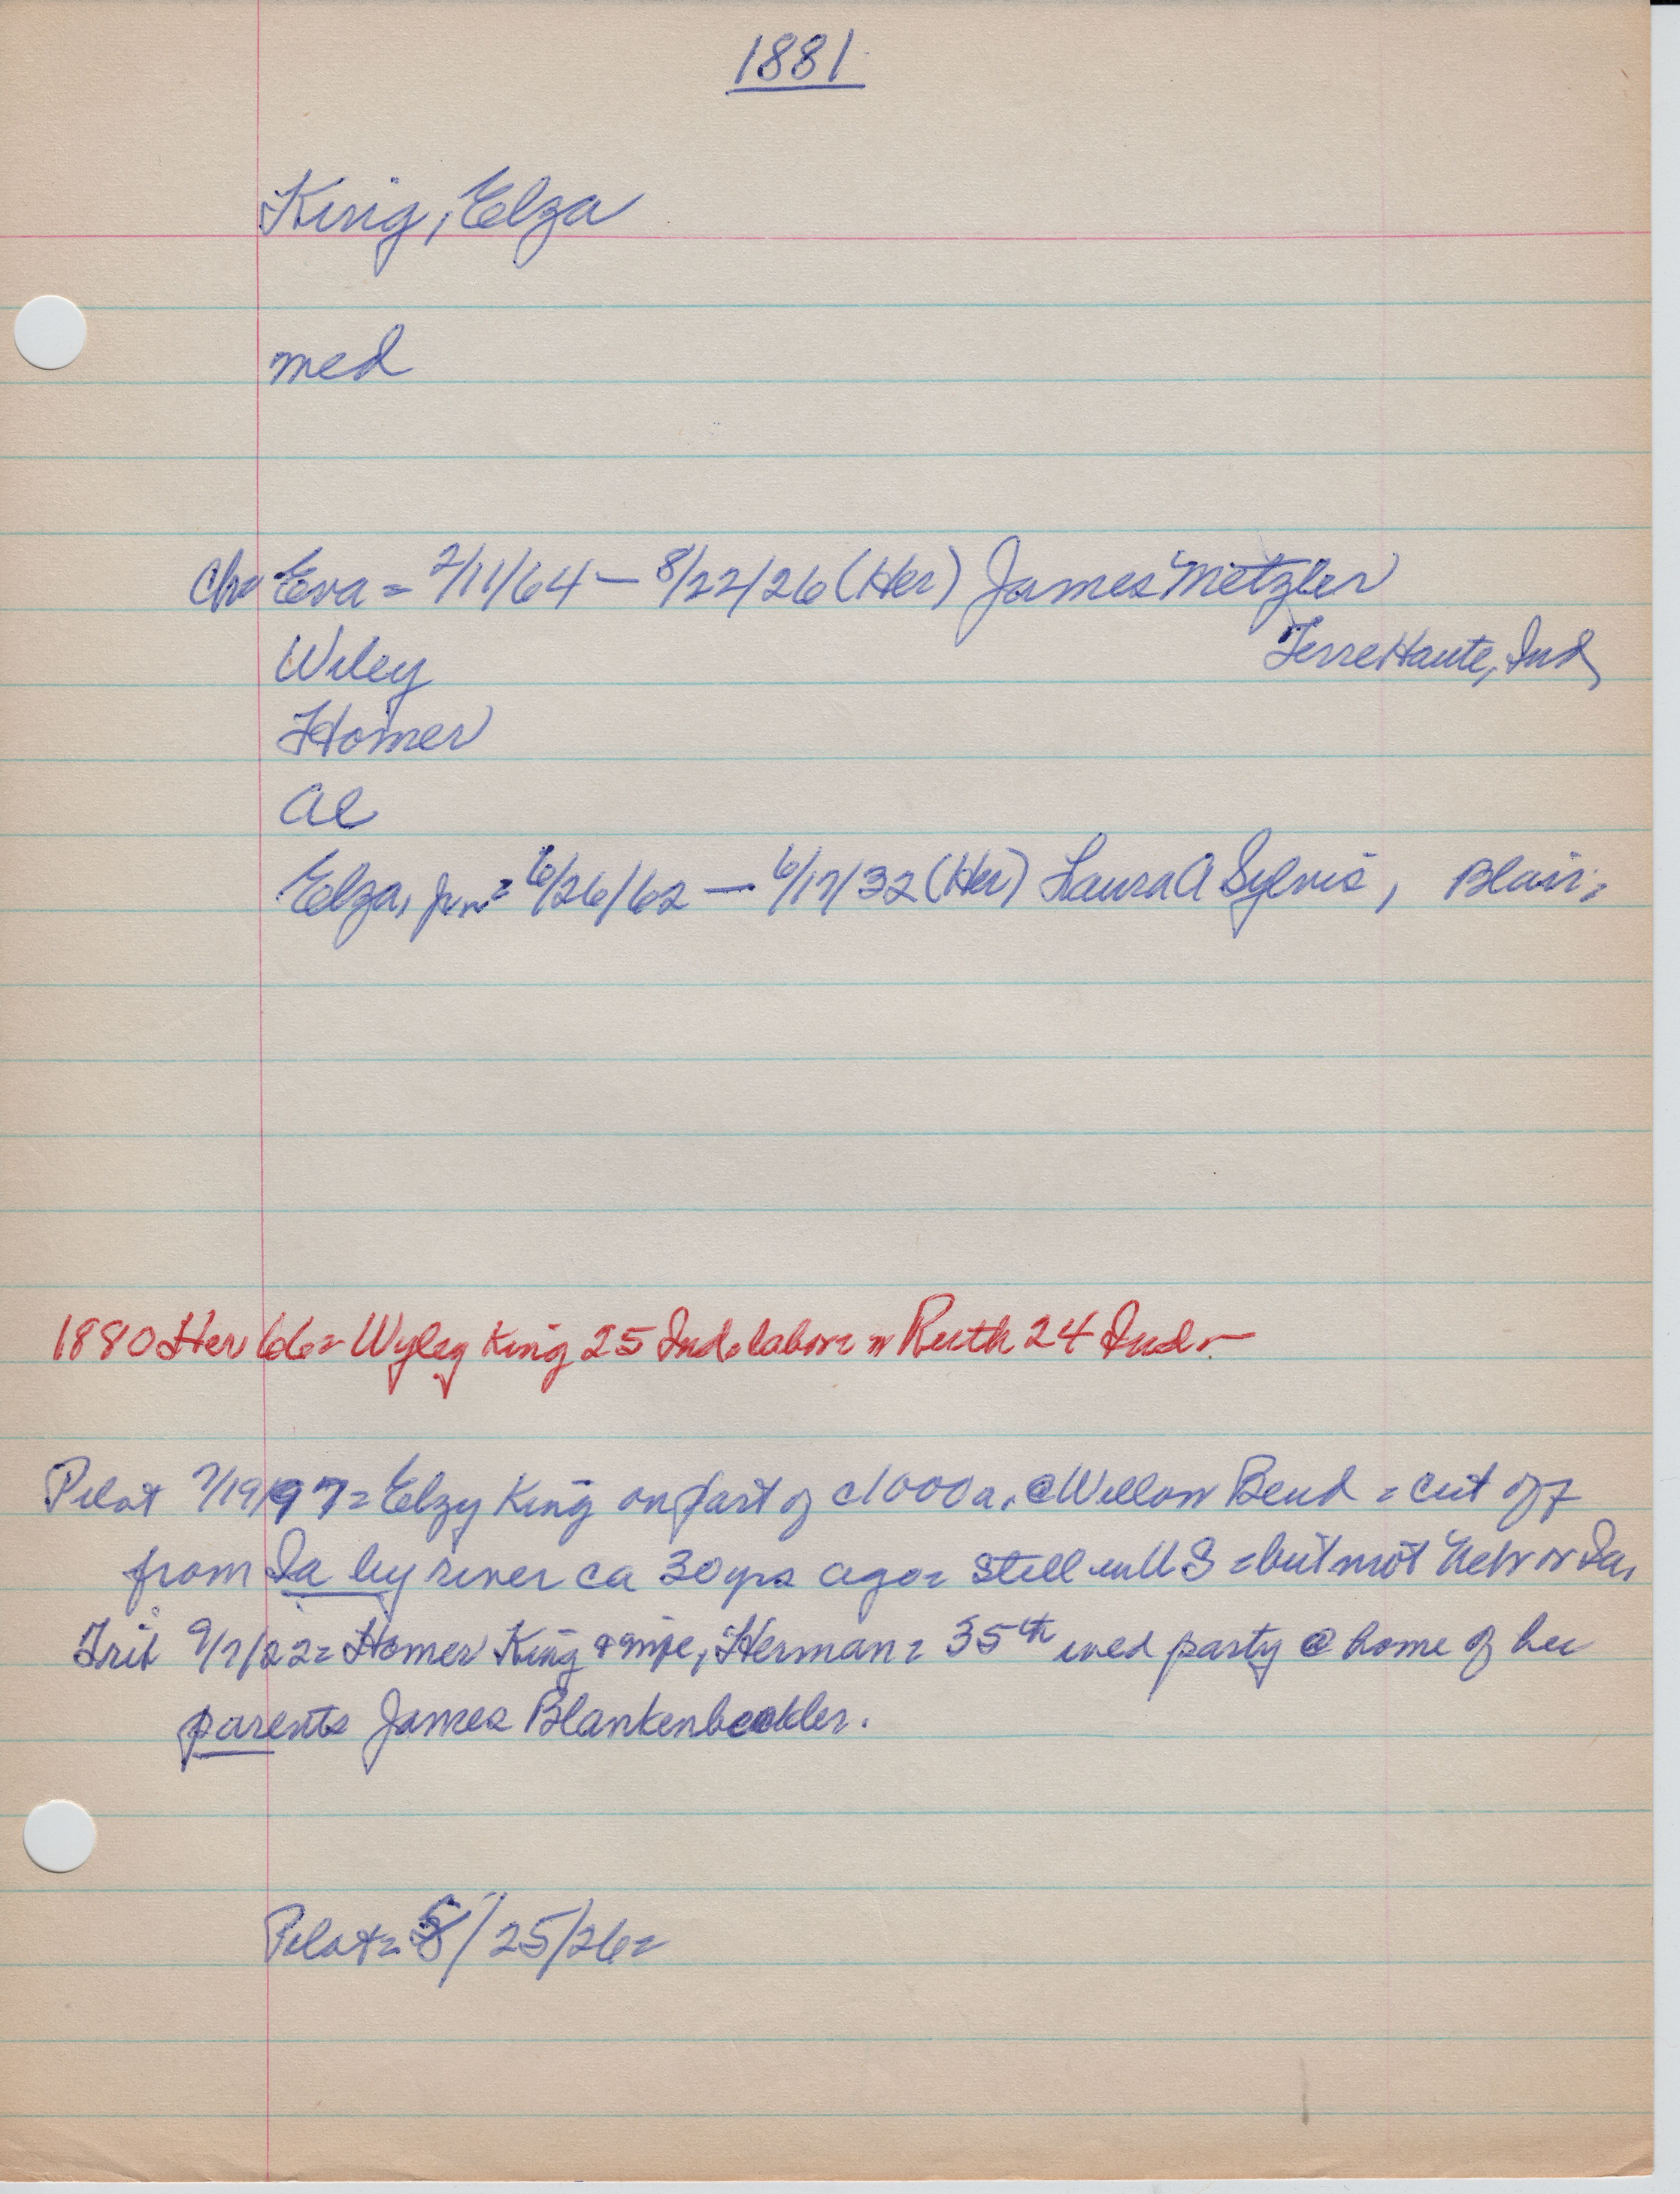 1881
King, Elza
med
Chr Eva = 2/11/64 — 8/22/26 (Her) James Metzler
Terre Haute, Ind,
Wiley
Homer
Al
Elza, Jun = 6/26/62 — 6/17/32 (Her) Laura A Sylvis, Blair =
1880 Her 66 = Wyley King 25 Ind = labor = w Ruth 24 Ind -
Pilot 7/19/97 = Elzy King on part of c1000 a. @ Willow Bend = cut off
from Ia by river ca 30 yrs ago = still in U S = but not Nebr or Ia,
Trib 9/7/22 = Homer King & wife, Herman = 35th wed party @ home of her
parents James Blankenbeckler.
Pilot = 8/25/26 =